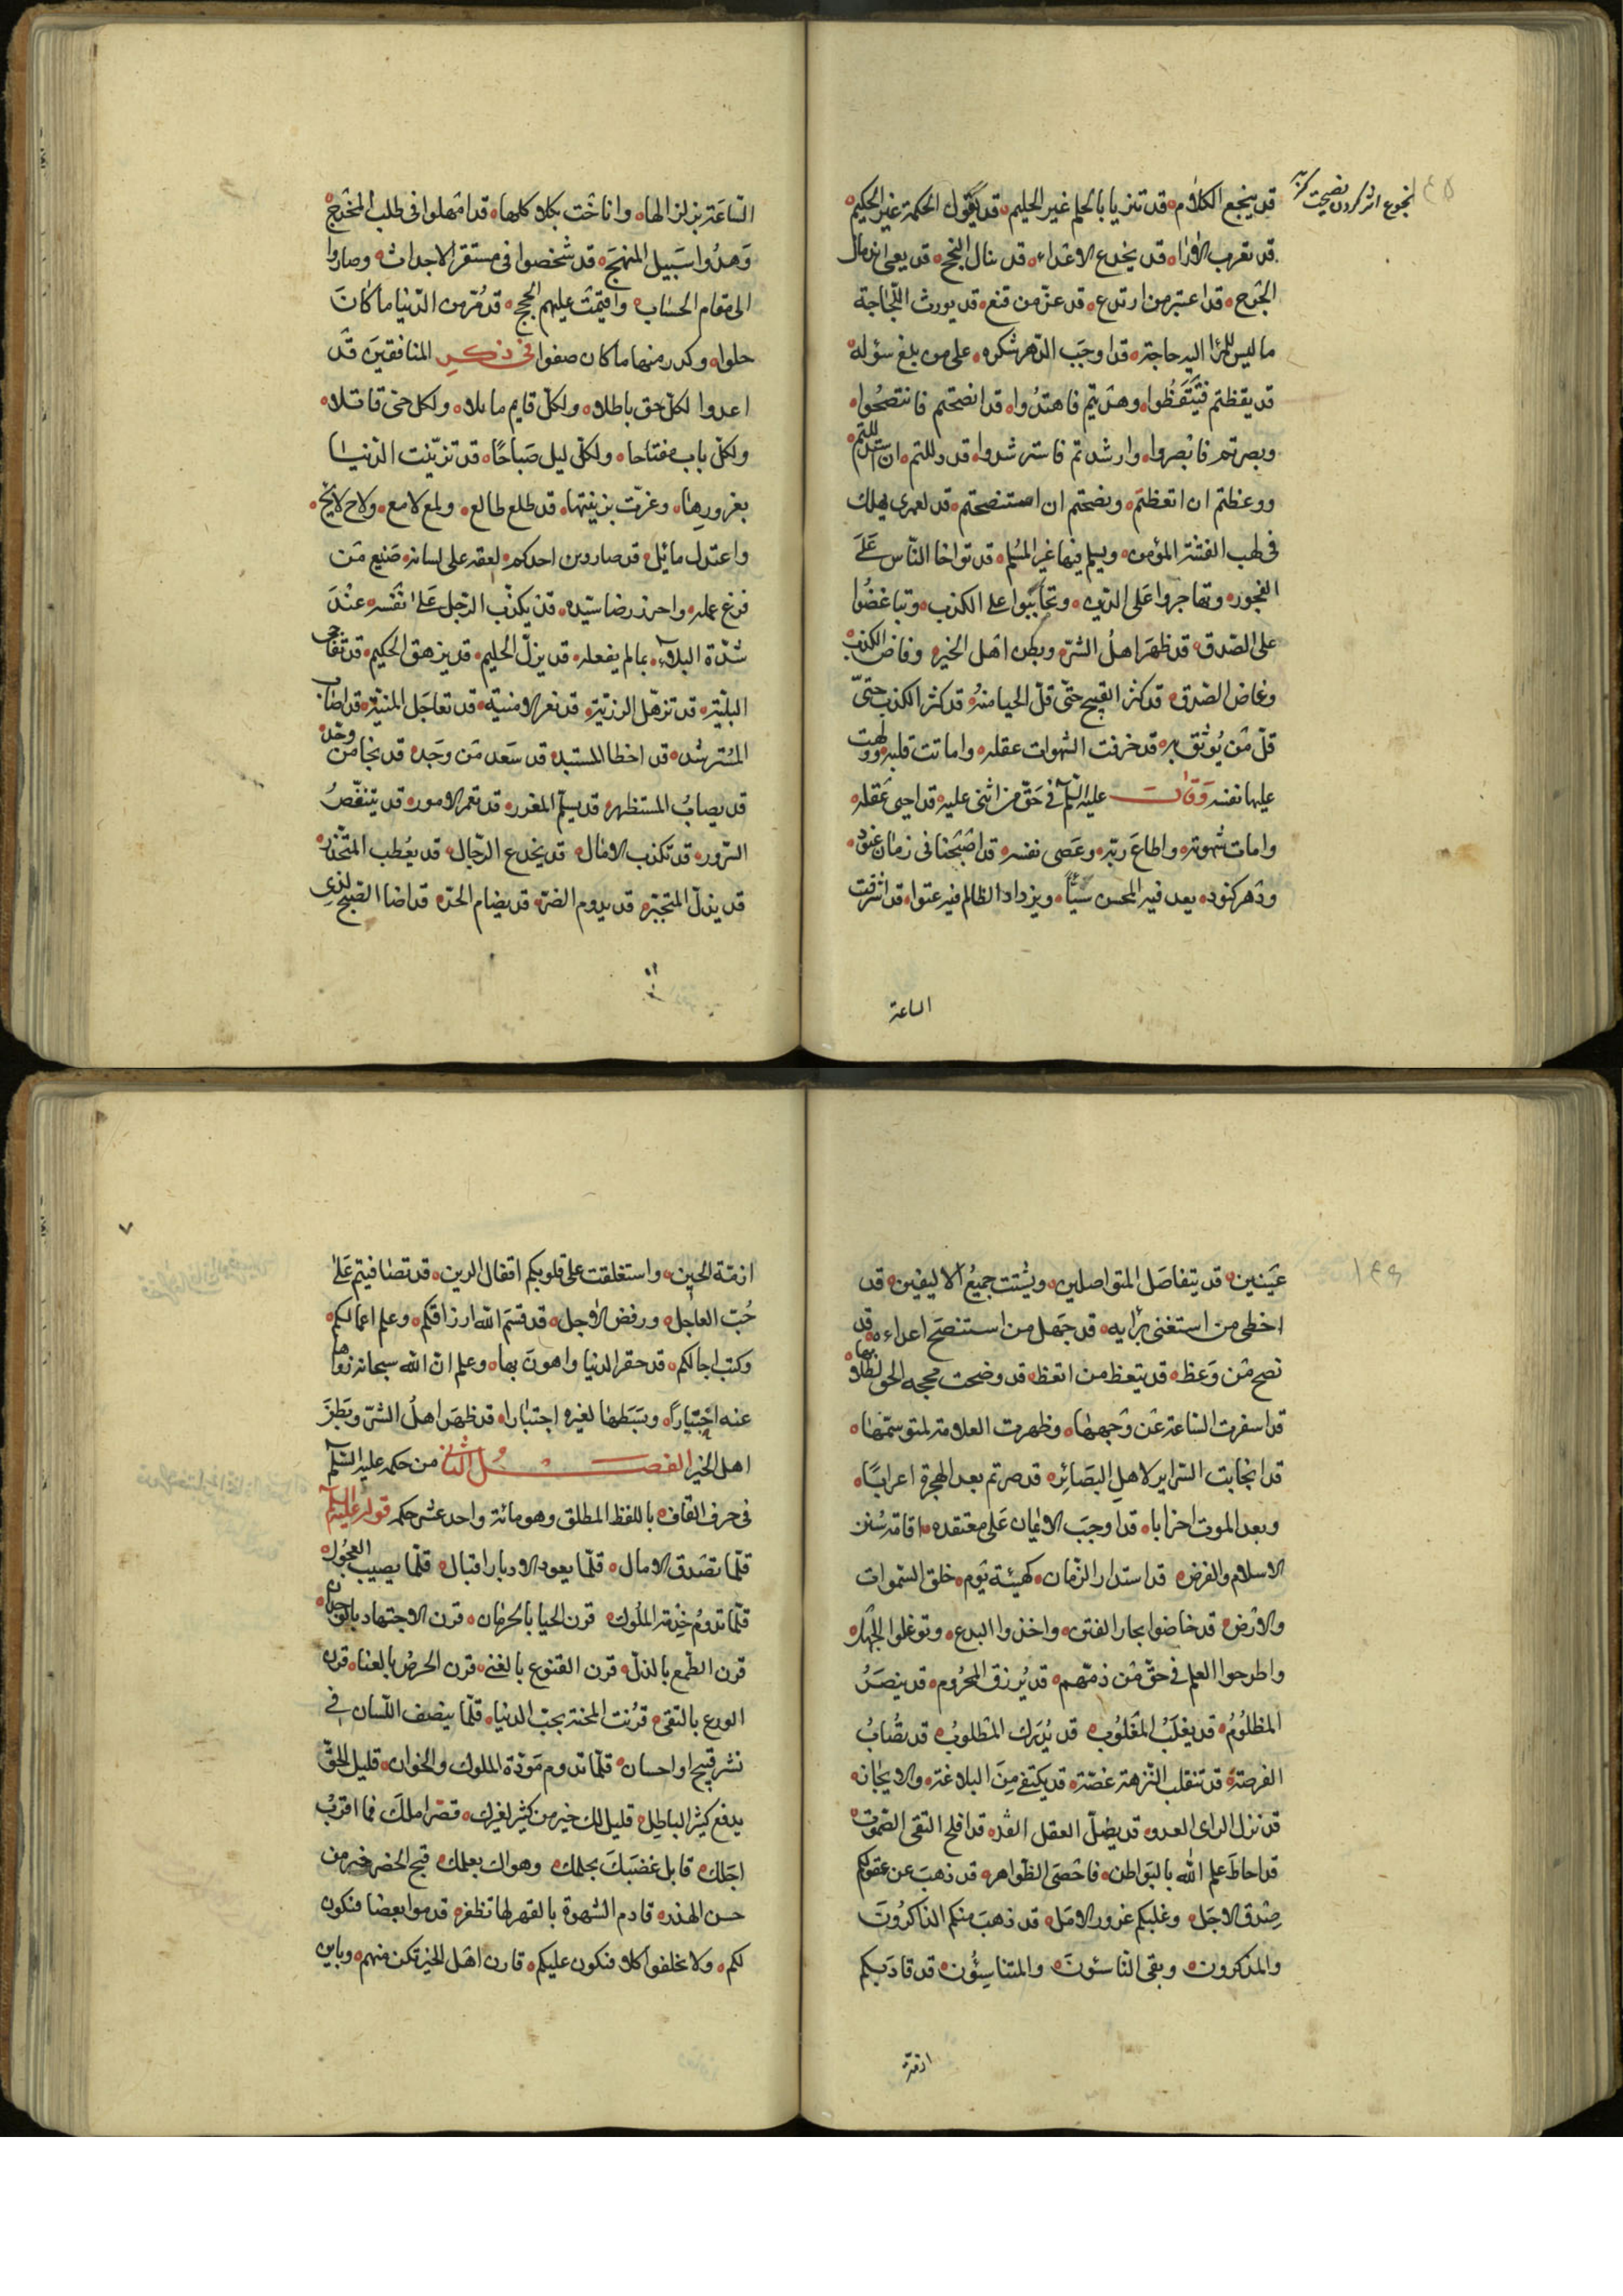 قد ينجع الكلام قد تنزيا بالحلم غير الحليم قد يقول الحكمة غير الحكيم
قد تقرب الاراء قد يخدع الاعداء قد ينال النجح قد يعى اندمال
الجرح قد اعتبر من ارتدع قد عز من قنع قد يورث اللجاجة
ما ليس للمرا اليه حاجة قد اوجب الدهر شكره على من بلغ سؤله
قد يقظتم فتيقظوا وهديتم فاهتدوا قد انصحتم فانتصحوا
وبصرتم فابصروا وارشدتم فاسترشدوا قد دللتم ان استدللتم
ووعظتم ان اتعظتم ونصحتم ان استنصحتم قد لعمرى يهلك
فى لهب الفتنة المؤمن ويسلم فيها غير المسلم قد تواخا الناس على
الفجور وتهاجروا على الدين وتحاببوا على الكذب وتباغضوا
على الصدق قد ظهر اهل الشر وبطن اهل الخير وفاض الكذب
وغاض الصدق قد كثر القبيح حتى قل الحيا منه قد كثر الكذب حتى
قل من يوثق به قد خرفت الشهوات عقله واماتت قلبه وولهت
عليها نفسه وقال عليه السلم فى حق من اثنى عليه قد احيى عقله
وامات شهوته واطاع ربه وعصى نفسه قد اصبحنا فى زمان عنود
ودهر كنود يعد فيه المحسن سيئا ويزداد الظالم فيه عتوا قد اشرفت
الساعة
الساعة بزلزالها واناخت بكلا كلها قد امهلوا فى طلب المخرج
وهدوا سبيل المنهج قد شخصوا فى مستقر الاجداث وصاروا
الى مقام الحساب واقيمت عليهم الحجج قد مر من الدنيا ما كان
حلوا وكدر منها ما كان صفوا فى ذكر المنافقين قد
اعدوا لكل حق باطلا ولكل قايم مايلا ولكل حى قاتلا
ولكل باب مفتاحا ولكل ليل صباحا قد تزينت الدنيا
بغرورها وغرت بزينتها قد طلع طالع ولمع لامع ولاح لايح
واعتدل مائل قد صار دين احدكم لعقة على لسانه صنيع من
فرغ عمله واحرز رضا سيده قد يكذب الرجل على نفسه عند
شدة البلاء بما لم يفعله قد يزل الحليم قد يزهق الحكيم قد تفاجى
البلية قد تزهل الرزية قد تغر الامنية قد تعاجل المنية قد اصاب
المسترشد قد اخطا المستبد قد سعد من وجد قد نجا من وحد
قد يصاب المستظهر قد يسلم المغرر قد تعم الامور قد يتنغص
السرور قد تكذب الامال قد يخدع الرجال قد يعطب المتحذر
قد يذل المتجبر قد يدوم الضر قد يضام الحر قد اضا الصبح لذى
عينين قد يتفاصل المتواصلين ويشتت جميع الاليفين قد
اخطى من استغنى برايه قد جهل من استنصح اعداءه قد
نصح من وعظ قد يتعظ من اتعظ قد وضحت محجه الحق لطلابها
قد اسفرت الساعة عن وجهها وظهرت العلامة لمتوسمها
قد انجابت السراير لاهل البصائر قد صرتم بعد الهجرة اعرابا
وبعد الموت احزابا قد اوجب الايمان على معتقده اقامة سنن
الاسلام والفرض قد استدار الزمان كهيئة يوم خلق السموات
والارض قد خاضوا بحار الفتن واخذوا البدع وتوغلوا الجهل
واطرحوا العلم فى حق من ذمهم قد يرزق المحروم قد ينصر
المظلوم قد يغلب المغلوب قد يدرك المطلوب قد تصاب
الفرصة قد تنقلب النزهة غصة قد يكتفى من البلاغة والايجاز
قد نزل الراى العدو قد يضل العقل الفذ قد افلح التقى الصموت
قد احاط علم الله بالبواطن فاحصى الظواهر قد ذهب عن عقولكم
صدق الاجل وغلبكم غرور الامل قد ذهب منكم الذاكرون
والمذكرون وبقى الناسئون والمتناسئون قد قادتكم
ازمة
ازمة الحين واستغلقت على قلوبكم اقفال الرين قد تصافيتم على
حب العاجل ورفض الاجل قد قسم الله ارزاقكم وعلم اعمالكم
وكتب اجالكم قد حقر الدنيا واهون بها وعلم ان الله سبحانه زواها
عنه اختيارا وبسطها لغيره اختبارا قد ظهر اهل الشر وبطن
اهل الخير الفصل الثانى من حكمه عليه السلم
فى حرف القاف باللفظ المطلق وهو مائة واحد عشر حكم قوله عليه السلم
قلما تصدق الامال قلما يعود الادبار اقبال قلما يصيب العجول
قلما تدوم خدمة الملوك قرن الحيا بالحرمان قرن الاجتهاد بالوجدان
قرن الطمع بالذل قرن القنوع بالغنى قرن الحرص بالعنا قرن
الورع بالتقى قرنت المحنة بحب الدنيا قلما ينصف اللسان فى
نشر قبيح او احسان قلما تدوم مودة الملوك والخوان قليل الحق
يدفع كثير الباطل قليل لك خير من كثير لغيرك قصر املك فما اقرب
اجلك قابل غضبك بحلمك وهواك بعلمك قبح الحصر خير من
حسن الهذر قادم الشهوة بالقهر لها تظفر قدموا بعضا فتكون
لكم ولا تخلفوا كلا فتكون عليكم قارن اهل الخير تكن منهم وباين